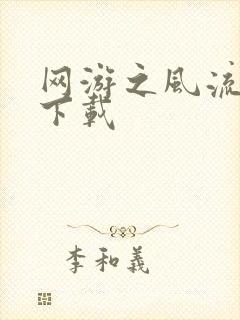 网游之风流
下载
李和義